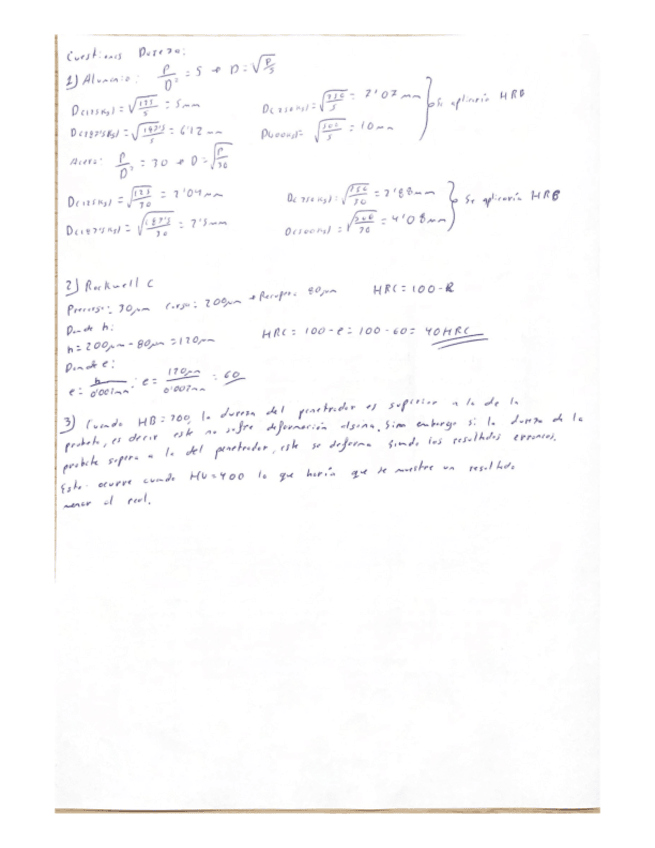 Cuestiones Dureza:
1) Aluminio: P/D² = 5 → D = √(P/5)
D(125Kg) = √(125/5) = 5mm
D(250Kg) = √(250/5) = 7'07 mm
Se aplicaría HRB
D(187'5Kg) = √(187'5/5) = 6'12 mm
D(500Kg) = √(500/5) = 10mm
Acero: P/D² = 30 → D = √(P/30)
D(125Kg) = √(125/30) = 2'04mm
D(250Kg) = √(250/30) = 2'88mm
Se aplicaría HRB
D(187'5Kg) = √(187'5/30) = 2'5mm
D(500Kg) = √(500/30) = 4'08mm
2) Rockwell C
Precarga: 30µm Carga: 200µm Recuper: 80µm HRC = 100 - e
Donde h:
h = 200µm - 80µm = 120µm HRC = 100 - e = 100 - 60 = 40HRC
Donde e:
e = h/0'002mm ; e = 120µm/0'002mm = 60
3) Cuando HB=200, la dureza del penetrador es superior a la de la
probeta, es decir este no sufre deformación alguna. Sim embargo si la dureza de la
probeta supera a la del penetrador, este se deforma siendo los resultados erroneos.
Esto ocurre cuando HV=400 lo que haría que se muestre un resultado
menor al real.